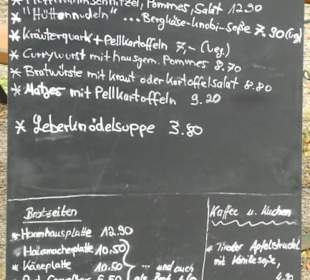 Pommes, Salat 12.90
* "Hüttennudeln" ... Bergkäse-Knobi-Soße 7,90 (Veg)
* Kräuterquark + Pellkartoffeln 7,- (Veg.)
* Currywurst mit hausgem. Pommes 8.70
* Bratwürste mit Kraut oder Kartoffelsalat 8.80
* Matjes mit Pellkartoffeln 9.20
* Leberknödelsuppe 3.80
Brotzeiten
* Hornhausplatte 12.90
* Holzmacherplatte 10,50
* Käseplatte 10.50 ... und auch
6.50
Kaffee u. Kuchen
* Tiroler Apfelstrudel
mit Vanillesoße,
4.30